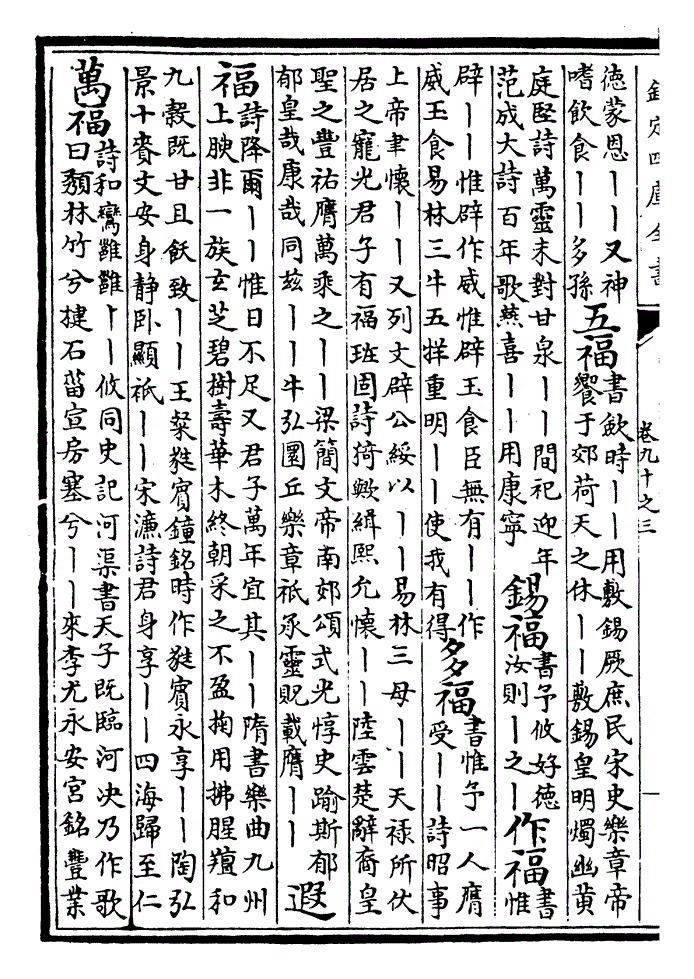 欽定四庫全書
卷九十之三
德蒙恩丨丨又神
嗜飲食丨丨多孫
五福
書歛時丨丨用敷錫厥庶民宋史樂章帝
饗于郊荷天之休丨丨敷錫皇明燭幽黄
庭堅詩萬靈未對甘泉丨丨間祀迎年
范成大詩百年歌燕喜丨丨用康寧
錫福
書予攸好德
汝則丨之丨
作福
書
惟
辟丨丨惟辟作威惟辟玉食臣無有丨丨作
威玉食易林三牛五牂重明丨丨使我有得
多福
書惟予一人膺
受丨丨詩昭事
上帝聿懷丨丨又列文辟公綏以丨丨易林三母丨丨天禄所伏
居之寵光君子有福班固詩猗歟緝熙允懷丨丨陸雲楚辭裔皇
聖之豐祐膺萬乘之丨丨梁簡文帝南郊頌式光惇史踰斯郁
郁皇哉康哉同兹丨丨牛弘圜丘樂章祗承靈貺載膺丨丨
遐
福
詩降爾丨丨惟日不足又君子萬年宜其丨丨隋書樂曲九州
上腴非一族玄芝碧樹壽華木終朝采之不盈掬用拂腥羶和
九穀既甘且飫致丨丨王粲蕤賓鐘銘時作蕤賓永享丨丨陶弘
景十賚文安身静卧顯祇丨丨宋濂詩君身享丨丨四海歸至仁
萬福
詩和鸞雝雝丨丨攸同史記河渠書天子既臨河决乃作歌
曰頽林竹兮揵石菑宣房塞兮丨丨來李尤永安宫銘豐業